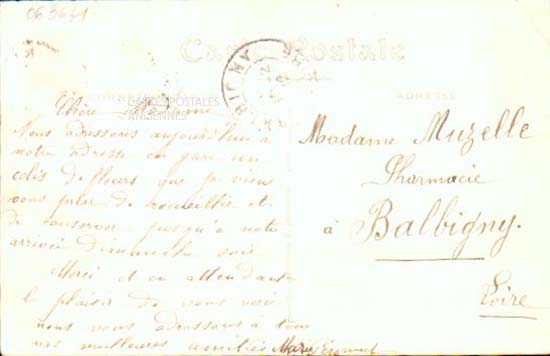 063641
Carte Postale
CARTES POSTALES
ANCIENNES
ADRESSE
Chère Madame
Nous adressons aujourd'hui à
notre adresse en gare un
colis de fleurs que je viens
vous prier de recueillir et
de conserver jusqu'à notre
arrivée dimanche soir
Merci et en attendant
le plaisir de vous voir
nous vous adressons à tous
nos meilleures amitiés Marg
Madame Muzelle
Pharmacie
à Balbigny.
Loire